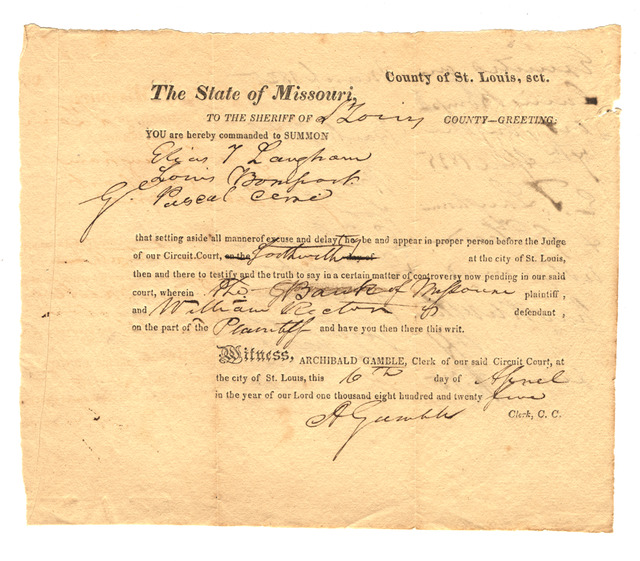 County of St. Louis, sct.
The State of Missouri,
TO THE SHERIFF OF St Louis COUNTY—GREETING:
YOU are hereby commanded to SUMMON
Elias T Langham
Louis Bompart
G. Pascal Cerre
that setting aside all manner of excuse and delay, they be and appear in proper person before the Judge
of our Circuit Court, on the forthwith day of at the city of St. Louis,
then and there to testify and the truth to say in a certain matter of controversy now pending in our said
court, wherein The Bank of Missouri plaintiff,
and William Rector is defendant,
on the part of the Plaintiff and have you then there this writ.
Witness, ARCHIBALD GAMBLE, Clerk of our said Circuit Court, at
the city of St. Louis, this 6th day of April
in the year of our Lord one thousand eight hundred and twenty five
A Gamble Clerk, C. C.